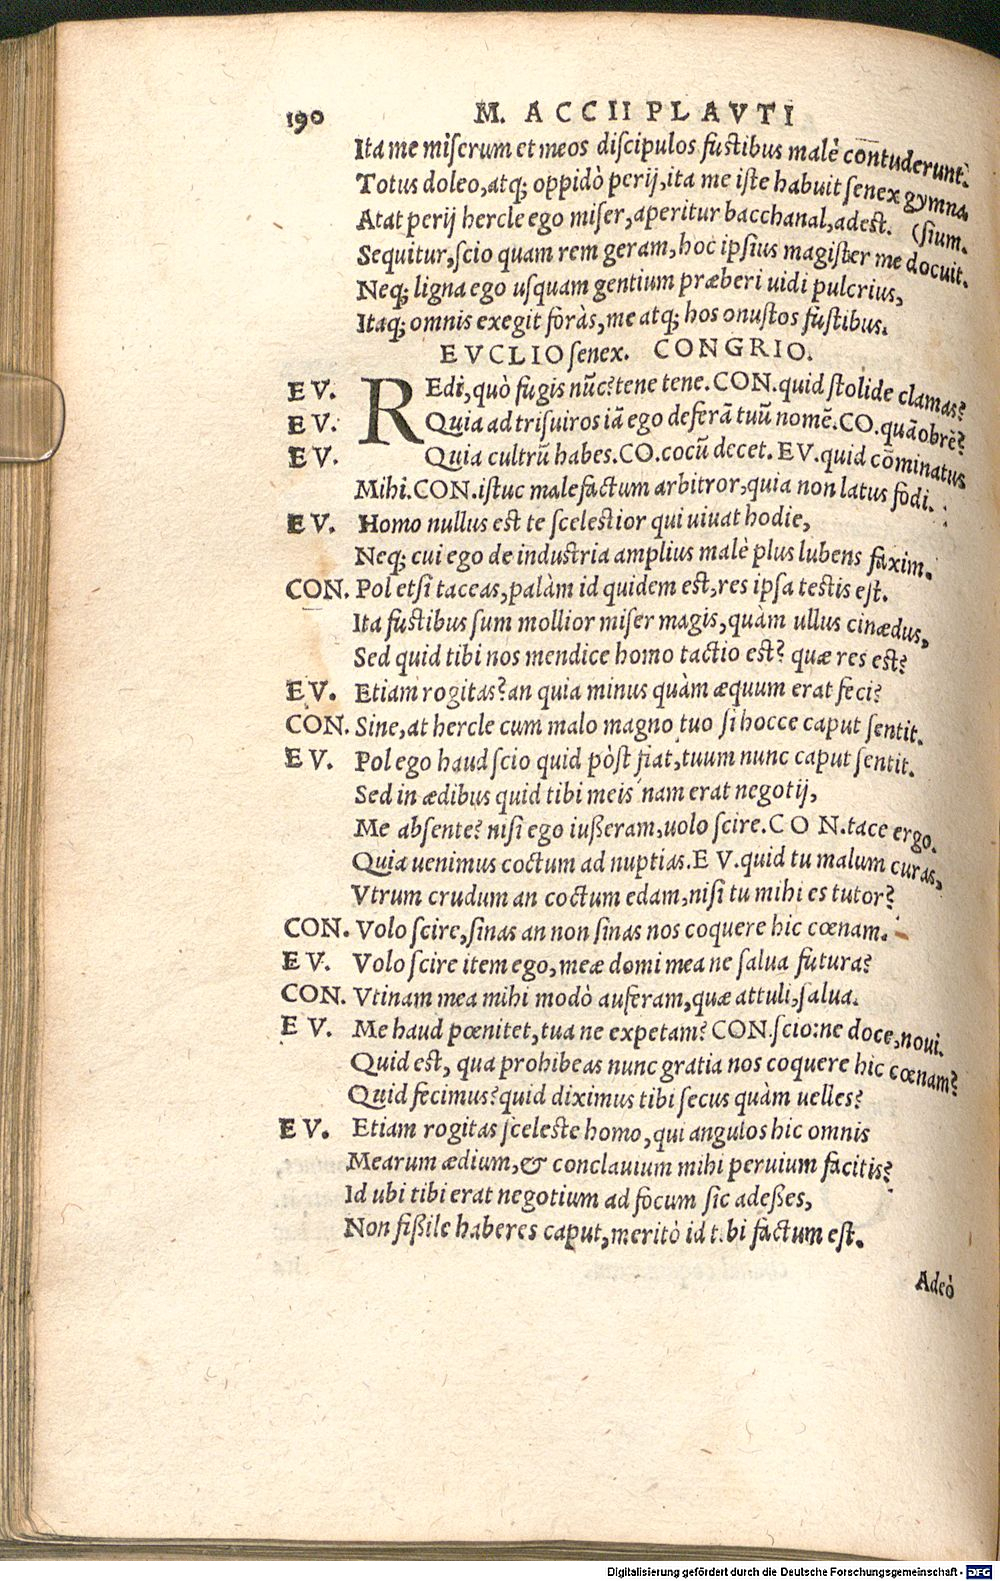 190 M. ACCII PLAVTI
Ita me miserum et meos discipulos fustibus malè contuderunt.
Totus doleo, atq; oppidò perij, ita me iste habuit senex gymna
Atat perij hercle ego miser, aperitur bacchanal, adest. (sium.
Sequitur, scio quam rem geram, hoc ipsius magister me docuit.
Neq; ligna ego usquam gentium præberi uidi pulcrius,
Itaq; omnis exegit foràs, me atq; hos onustos fustibus.
EVCLIO senex. CONGRIO.
EV. REdi, quò fugis nũc? tene tene. CON. quid stolide clamas?
EV. Quia ad trisuiros iã ego deferã tuũ nomẽ. CO. quãobrẽ?
EV. Quia cultrũ habes. CO. cocũ decet. EV. quid cõminatus
Mihi. CON. istuc malefactum arbitror, quia non latus fodi.
EV. Homo nullus est te scelestior qui uiuat hodie,
Neq; cui ego de industria amplius malè plus lubens faxim.
CON. Pol etsi taceas, palàm id quidem est, res ipsa testis est.
Ita fustibus sum mollior miser magis, quàm ullus cinædus,
Sed quid tibi nos mendice homo tactio est? quæ res est?
EV. Etiam rogitas? an quia minus quàm æquum erat feci?
CON. Sine, at hercle cum malo magno tuo si hocce caput sentit.
EV. Pol ego haud scio quid pòst fiat, tuum nunc caput sentit.
Sed in ædibus quid tibi meis nam erat negotij,
Me absente? nisi ego iußeram, uolo scire. CON. tace ergo.
Quia uenimus coctum ad nuptias. EV. quid tu malum curas,
Vtrum crudum an coctum edam, nisi tu mihi es tutor?
CON. Volo scire, sinas an non sinas nos coquere hic cœnam.
EV. Volo scire item ego, meæ domi mea ne salua futura?
CON. Vtinam mea mihi modò auferam, quæ attuli, salua.
EV. Me haud pœnitet, tua ne expetam? CON. scio: ne doce, noui.
Quid est, qua prohibeas nunc gratia nos coquere hic cœnam?
Quid fecimus? quid diximus tibi secus quàm uelles?
EV. Etiam rogitas sceleste homo, qui angulos hic omnis
Mearum ædium, & conclauium mihi peruium facitis?
Id ubi tibi erat negotium ad focum sic adeßes,
Non fißile haberes caput, meritò id t.bi factum est.
Adeò
Digitalisierung gefördert durch die Deutsche Forschungsgemeinschaft - DFG